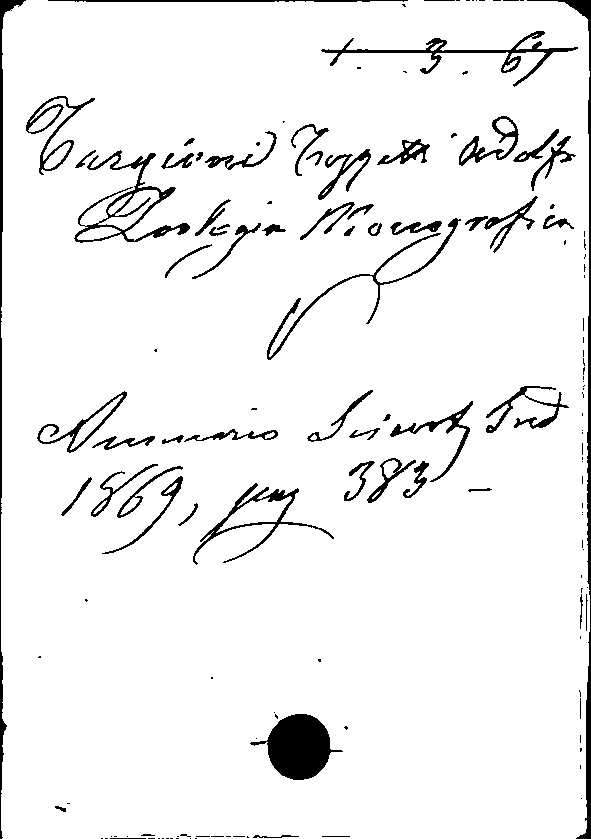 1. 3. 67
Targioni Tozzetti Adolfo
Zoologia Monografica
Annuario Scient Ind
1869, pag 383 -